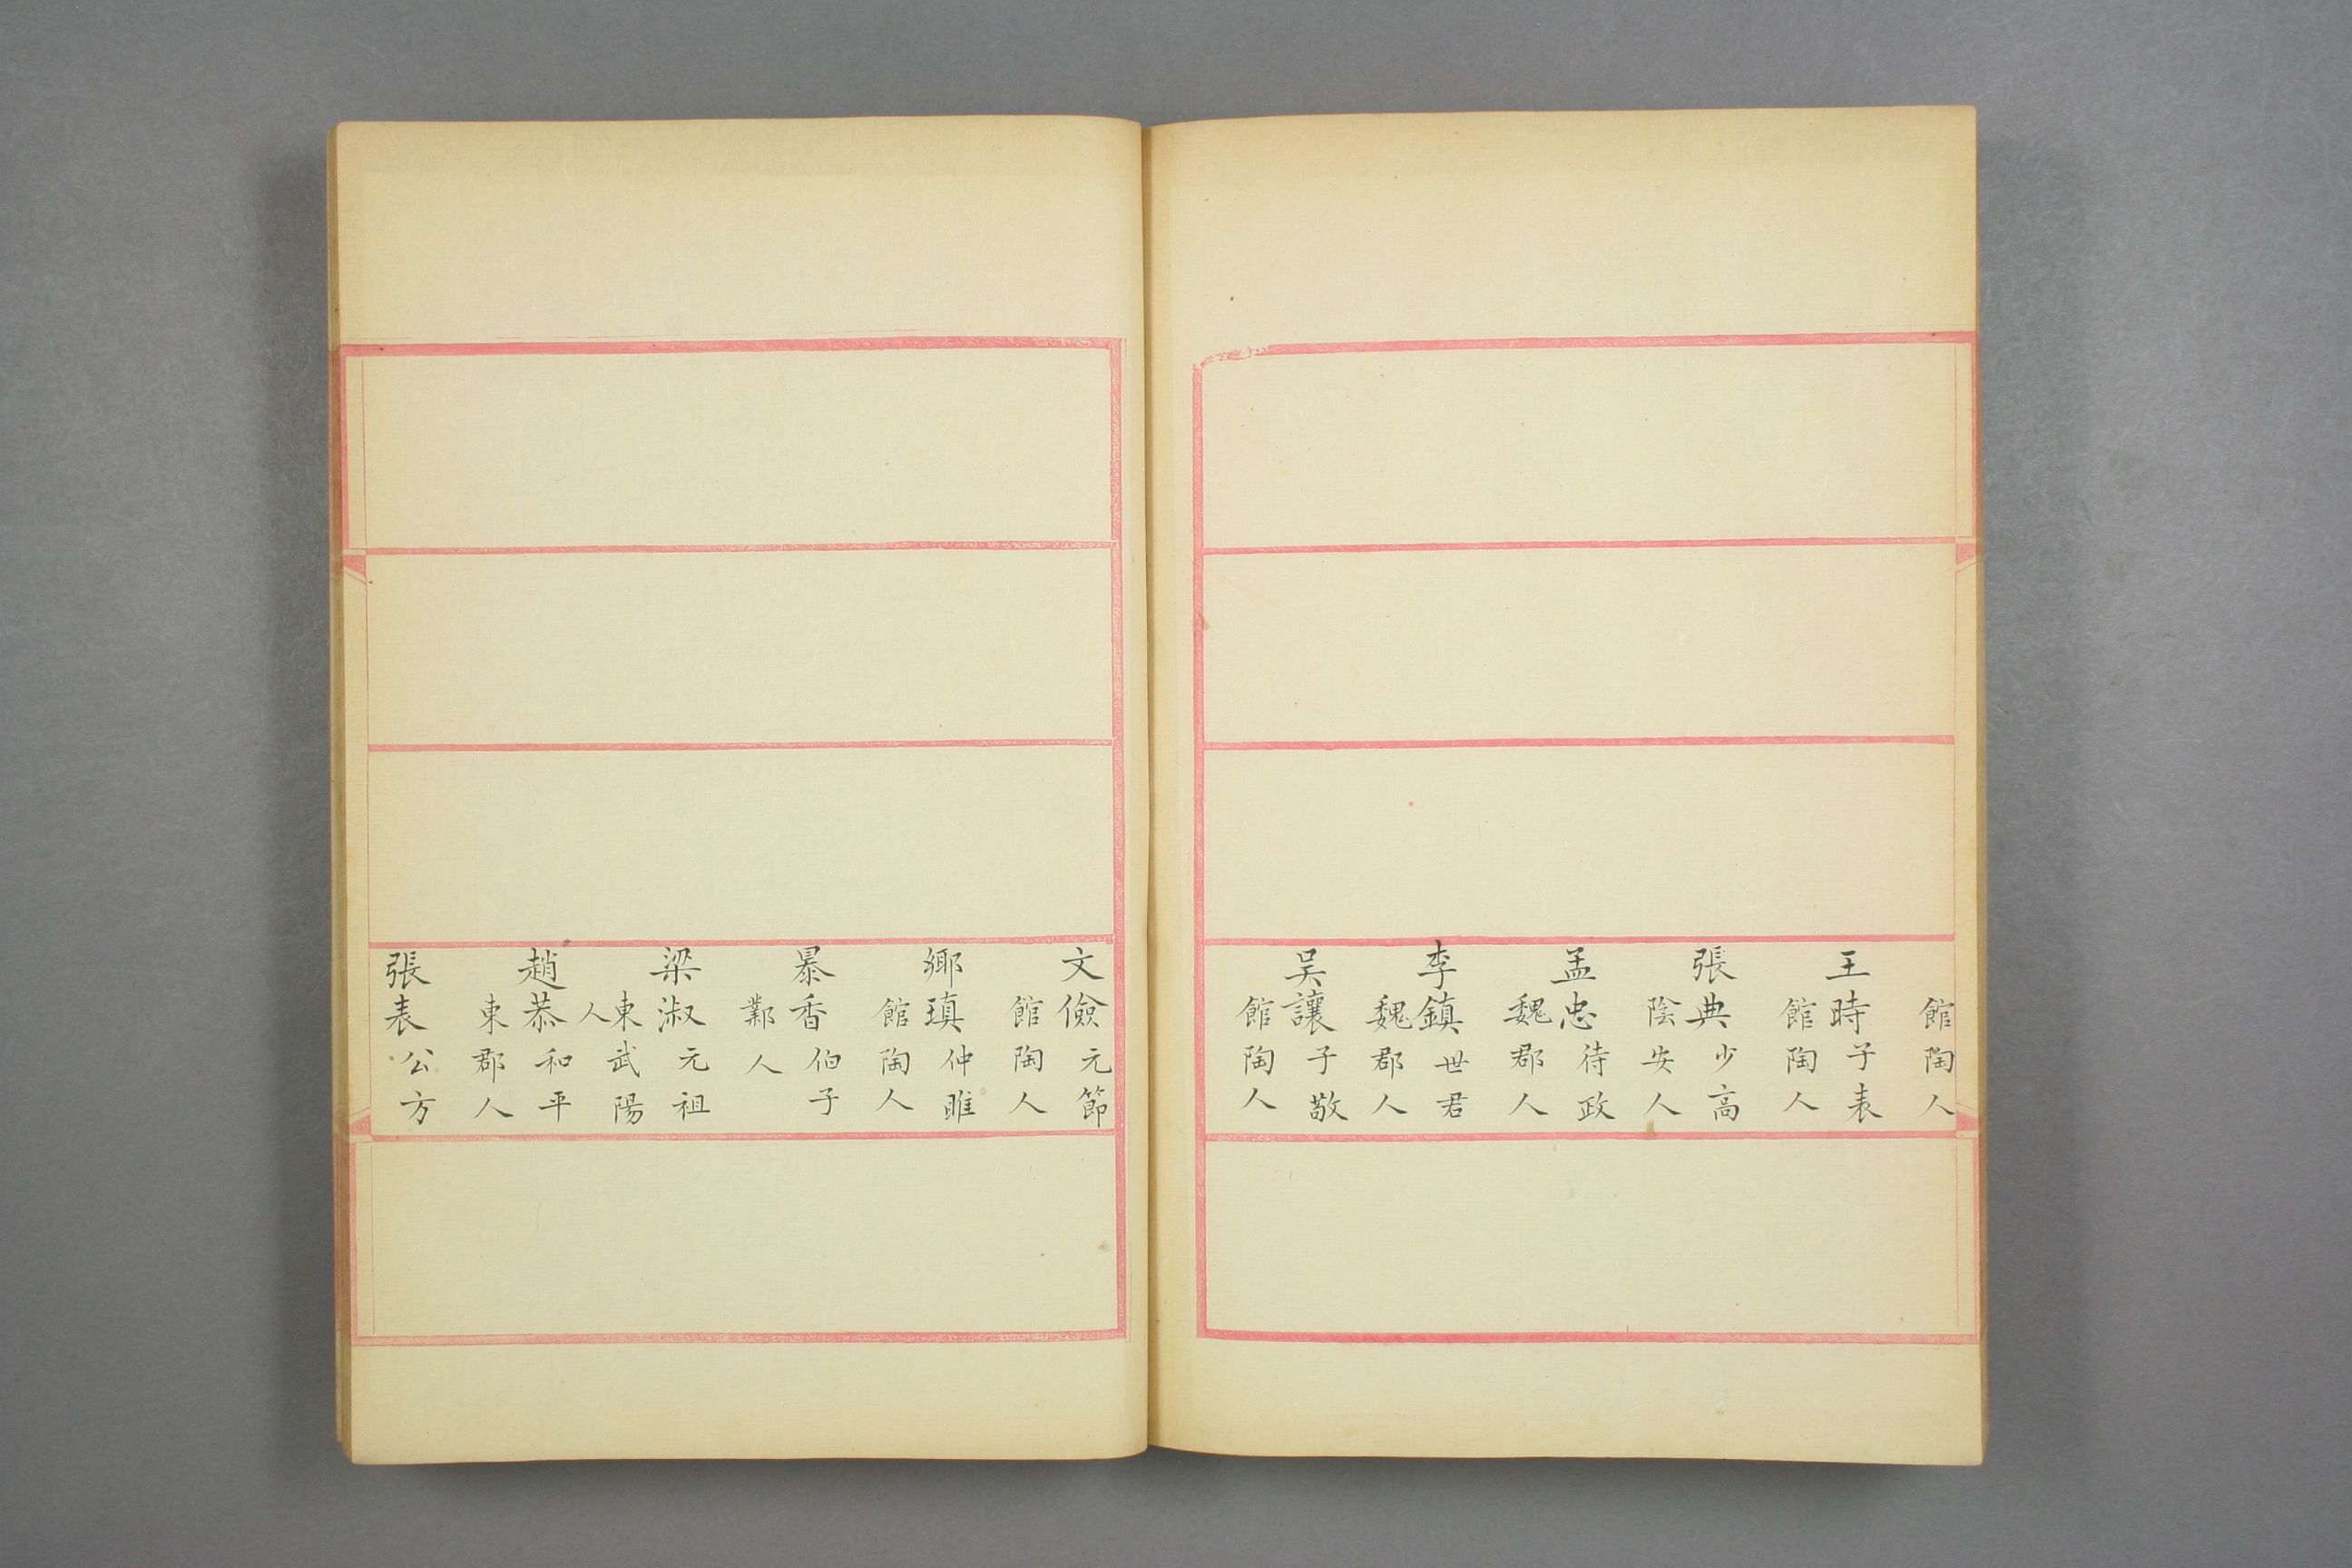 館陶人
王時子表
館陶人
張典少高
陰安人
孟忠待政
魏郡人
李鎮世君
魏郡人
吴讓子敬
館陶人
文儉元節
館陶人
鄉瑱仲雎
館陶人
暴香伯子
鄴人
梁淑元祖
東武陽
人
趙恭和平
東郡人
張表公方